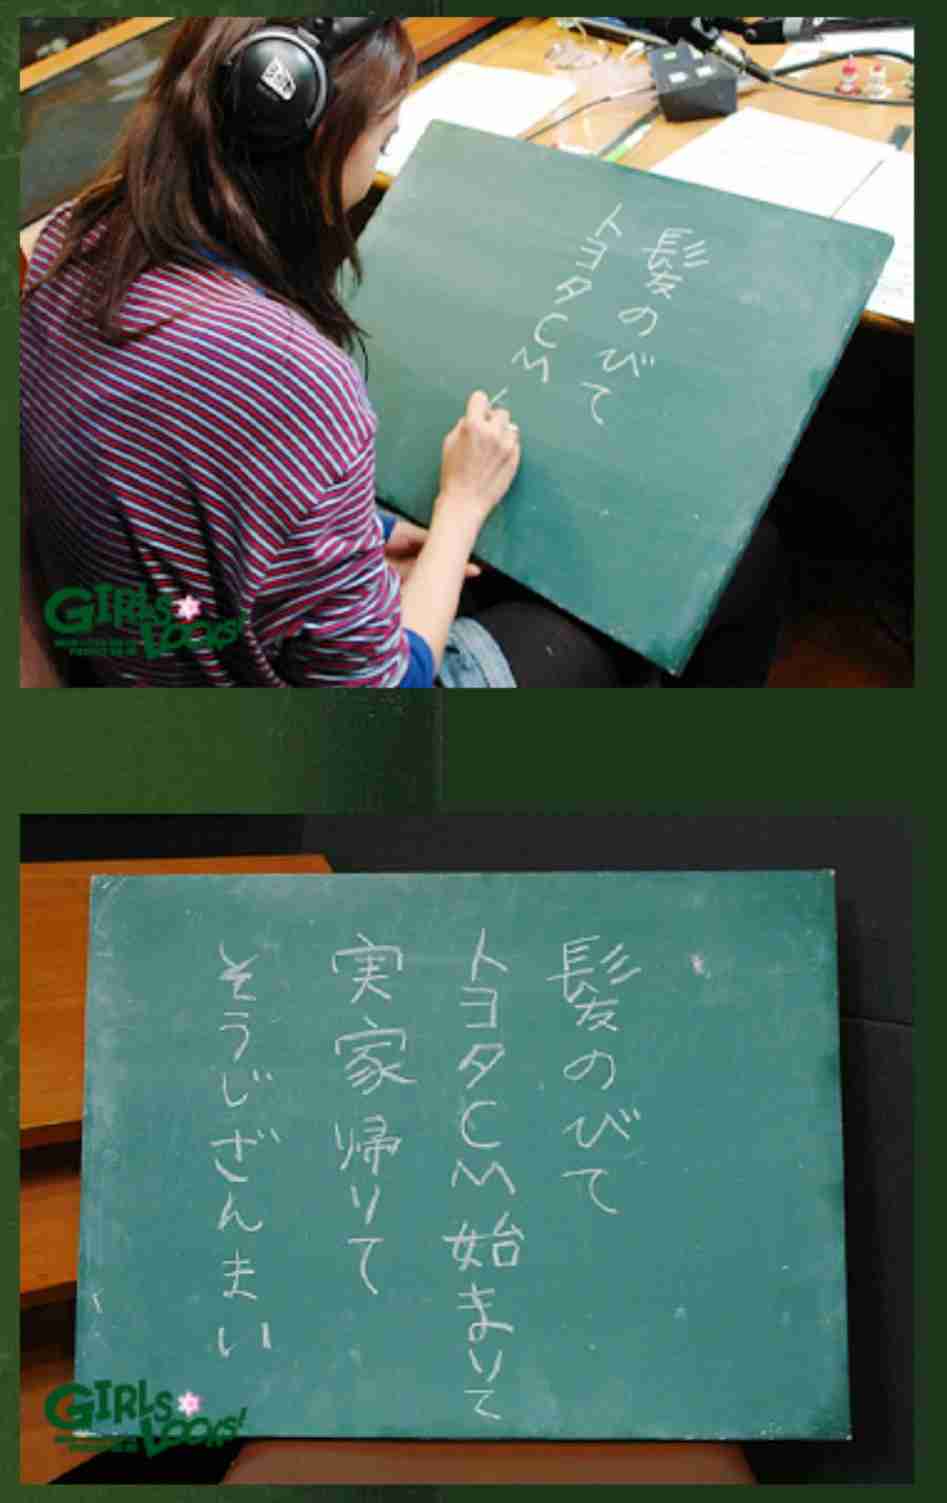 髪のびて
トヨタCM
GIRLS
LOCKS!
髪のびて
トヨタCM始まりて
実家帰りて
そうじざんまい
GIRLS
LOCKS!